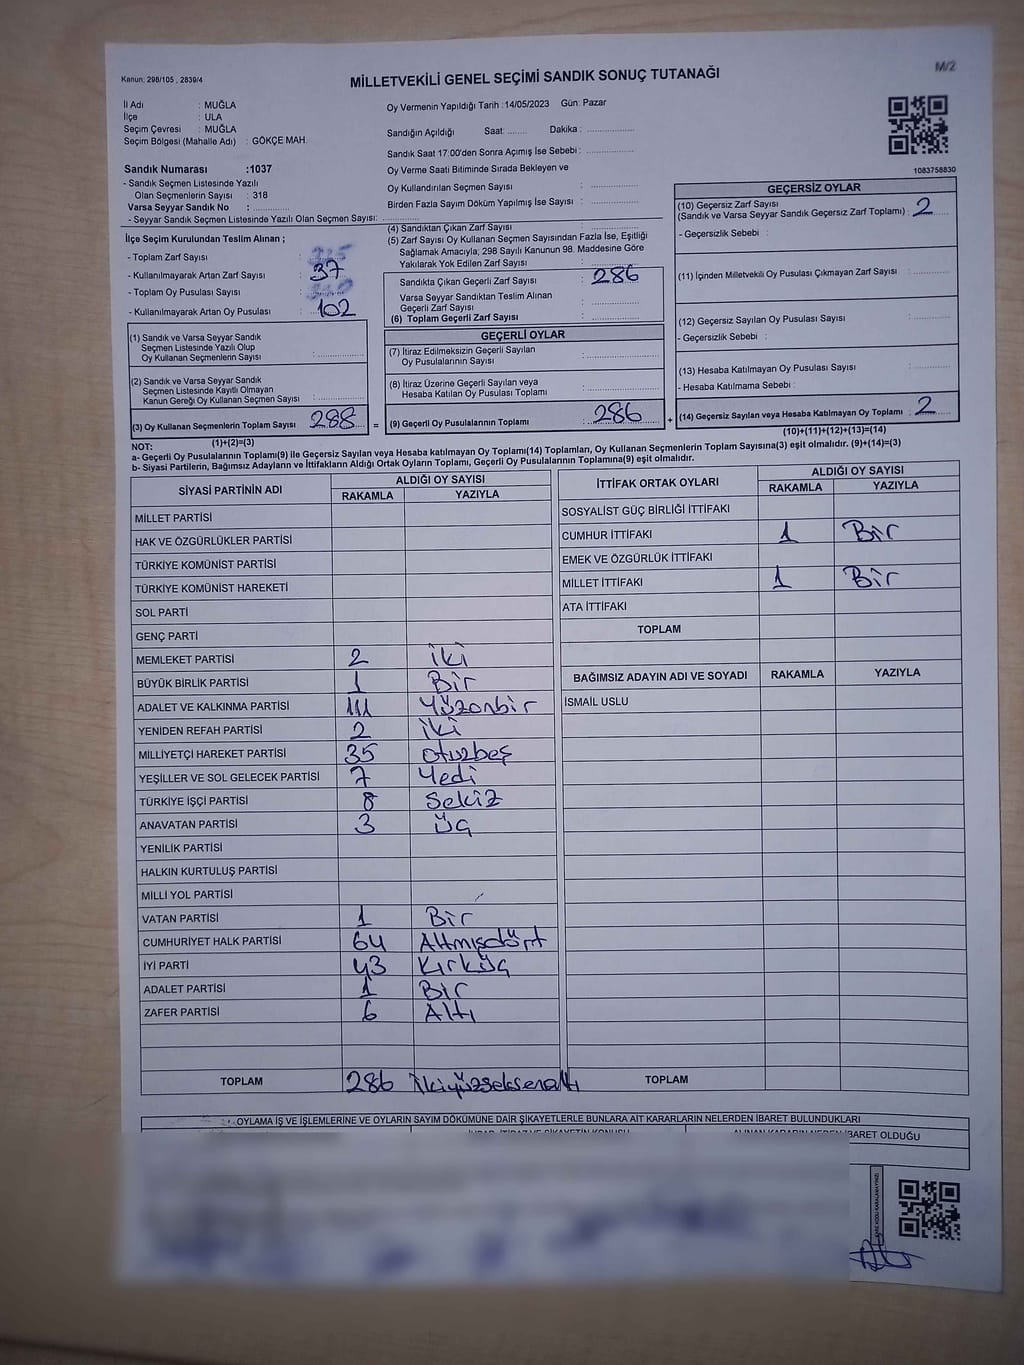 Kanun: 298/105 , 2839/4
MİLLETVEKİLİ GENEL SEÇİMİ SANDIK SONUÇ TUTANAĞI
M/2
İl Adı : MUĞLA
İlçe : ULA
Seçim Çevresi : MUĞLA
Seçim Bölgesi (Mahalle Adı) : GÖKÇE MAH.
Oy Vermenin Yapıldığı Tarih :14/05/2023 Gün: Pazar
Sandığın Açıldığı Saat: ........ Dakika : ................
Sandık Saat 17:00'den Sonra Açımış İse Sebebi : ................
Oy Verme Saati Bitiminde Sırada Bekleyen ve
Oy Kullandırılan Seçmen Sayısı : ................
Birden Fazla Sayım Döküm Yapılmış İse Sayısı : ................
1083758830
Sandık Numarası :1037
- Sandık Seçmen Listesinde Yazılı
Olan Seçmenlerin Sayısı : 318
Varsa Seyyar Sandık No : ................
- Seyyar Sandık Seçmen Listesinde Yazılı Olan Seçmen Sayısı: ................
İlçe Seçim Kurulundan Teslim Alınan ;
- Toplam Zarf Sayısı :
- Kullanılmayarak Artan Zarf Sayısı : 37
- Toplam Oy Pusulası Sayısı :
- Kullanılmayarak Artan Oy Pusulası : 102
(1) Sandık ve Varsa Seyyar Sandık
Seçmen Listesinde Yazılı Olup
Oy Kullanan Seçmenlerin Sayısı : ................
(2) Sandık ve Varsa Seyyar Sandık
Seçmen Listesinde Kayıtlı Olmayan
Kanun Gereği Oy Kullanan Seçmen Sayısı : ................
(3) Oy Kullanan Seçmenlerin Toplam Sayısı : 288 =
(1)+(2)=(3)
(4) Sandıktan Çıkan Zarf Sayısı : ................
(5) Zarf Sayısı Oy Kullanan Seçmen Sayısından Fazla İse, Eşitliği
Sağlamak Amacıyla, 298 Sayılı Kanunun 98. Maddesine Göre
Yakılarak Yok Edilen Zarf Sayısı : ................
Sandıkta Çıkan Geçerli Zarf Sayısı : 286
Varsa Seyyar Sandıktan Teslim Alınan
Geçerli Zarf Sayısı : ................
(6) Toplam Geçerli Zarf Sayısı : ................
GEÇERLİ OYLAR
(7) İtiraz Edilmeksizin Geçerli Sayılan
Oy Pusulalarının Sayısı : ................
(8) İtiraz Üzerine Geçerli Sayılan veya
Hesaba Katılan Oy Pusulası Toplamı : ................
(9) Geçerli Oy Pusulalarının Toplamı : 286 +
GEÇERSİZ OYLAR
(10) Geçersiz Zarf Sayısı
(Sandık ve Varsa Seyyar Sandık Geçersiz Zarf Toplamı) : 2
- Geçersizlik Sebebi :
(11) İçinden Milletvekili Oy Pusulası Çıkmayan Zarf Sayısı : ................
(12) Geçersiz Sayılan Oy Pusulası Sayısı : ................
- Geçersizlik Sebebi :
(13) Hesaba Katılmayan Oy Pusulası Sayısı : ................
- Hesaba Katılmama Sebebi :
(14) Geçersiz Sayılan veya Hesaba Katılmayan Oy Toplamı : 2
(10)+(11)+(12)+(13)=(14)
NOT:
a- Geçerli Oy Pusulalarının Toplamı(9) ile Geçersiz Sayılan veya Hesaba katılmayan Oy Toplamı(14) Toplamları, Oy Kullanan Seçmenlerin Toplam Sayısına(3) eşit olmalıdır. (9)+(14)=(3)
b- Siyasi Partilerin, Bağımsız Adayların ve İttifakların Aldığı Ortak Oyların Toplamı, Geçerli Oy Pusulalarının Toplamına(9) eşit olmalıdır.
SİYASİ PARTİNİN ADI ALDIĞI OY SAYISI
RAKAMLA YAZIYLA
MİLLET PARTİSİ
HAK VE ÖZGÜRLÜKLER PARTİSİ
TÜRKİYE KOMÜNİST PARTİSİ
TÜRKİYE KOMÜNİST HAREKETİ
SOL PARTİ
GENÇ PARTİ
MEMLEKET PARTİSİ 2 iki
BÜYÜK BİRLİK PARTİSİ 1 Bir
ADALET VE KALKINMA PARTİSİ 111 Yüzonbir
YENİDEN REFAH PARTİSİ 2 iki
MİLLİYETÇİ HAREKET PARTİSİ 35 otuzbeş
YEŞİLLER VE SOL GELECEK PARTİSİ 7 Yedi
TÜRKİYE İŞÇİ PARTİSİ 8 Sekiz
ANAVATAN PARTİSİ 3 üç
YENİLİK PARTİSİ
HALKIN KURTULUŞ PARTİSİ
MİLLİ YOL PARTİSİ
VATAN PARTİSİ 1 Bir
CUMHURİYET HALK PARTİSİ 64 Altmışdört
İYİ PARTİ 43 Kırküç
ADALET PARTİSİ 1 Bir
ZAFER PARTİSİ 6 Altı
TOPLAM 286 İkiyüzseksenaltı
İTTİFAK ORTAK OYLARI ALDIĞI OY SAYISI
RAKAMLA YAZIYLA
SOSYALİST GÜÇ BİRLİĞİ İTTİFAKI
CUMHUR İTTİFAKI 1 Bir
EMEK VE ÖZGÜRLÜK İTTİFAKI
MİLLET İTTİFAKI 1 Bir
ATA İTTİFAKI
TOPLAM
BAĞIMSIZ ADAYIN ADI VE SOYADI RAKAMLA YAZIYLA
İSMAİL USLU
TOPLAM
OYLAMA İŞ VE İŞLEMLERİNE VE OYLARIN SAYIM DÖKÜMÜNE DAİR ŞİKAYETLERLE BUNLARA AİT KARARLARIN NELERDEN İBARET BULUNDUKLARI
İBARET OLDUĞU